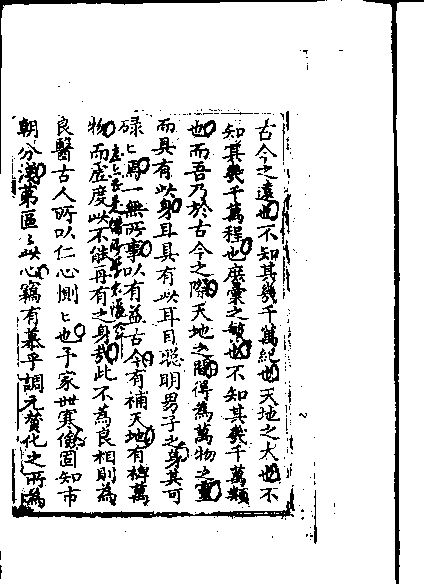 古今之遠也不知其幾千萬紀也天地之大也不
知其幾千萬程也庶彙之繁也不知其幾千萬類
也而吾乃於古今之際天地之間得為萬物之靈
而具有此身耳具有此耳目聰明男子之身其可
碌〻焉一無所事以有益古今有補天地有裨萬
物而虛度此不能再有之身哉此不為良相則為
良醫古人所以仁心惻〻也予家世寒儉固知市
朝分滿第區〻此心竊有慕乎調元贊化之所為